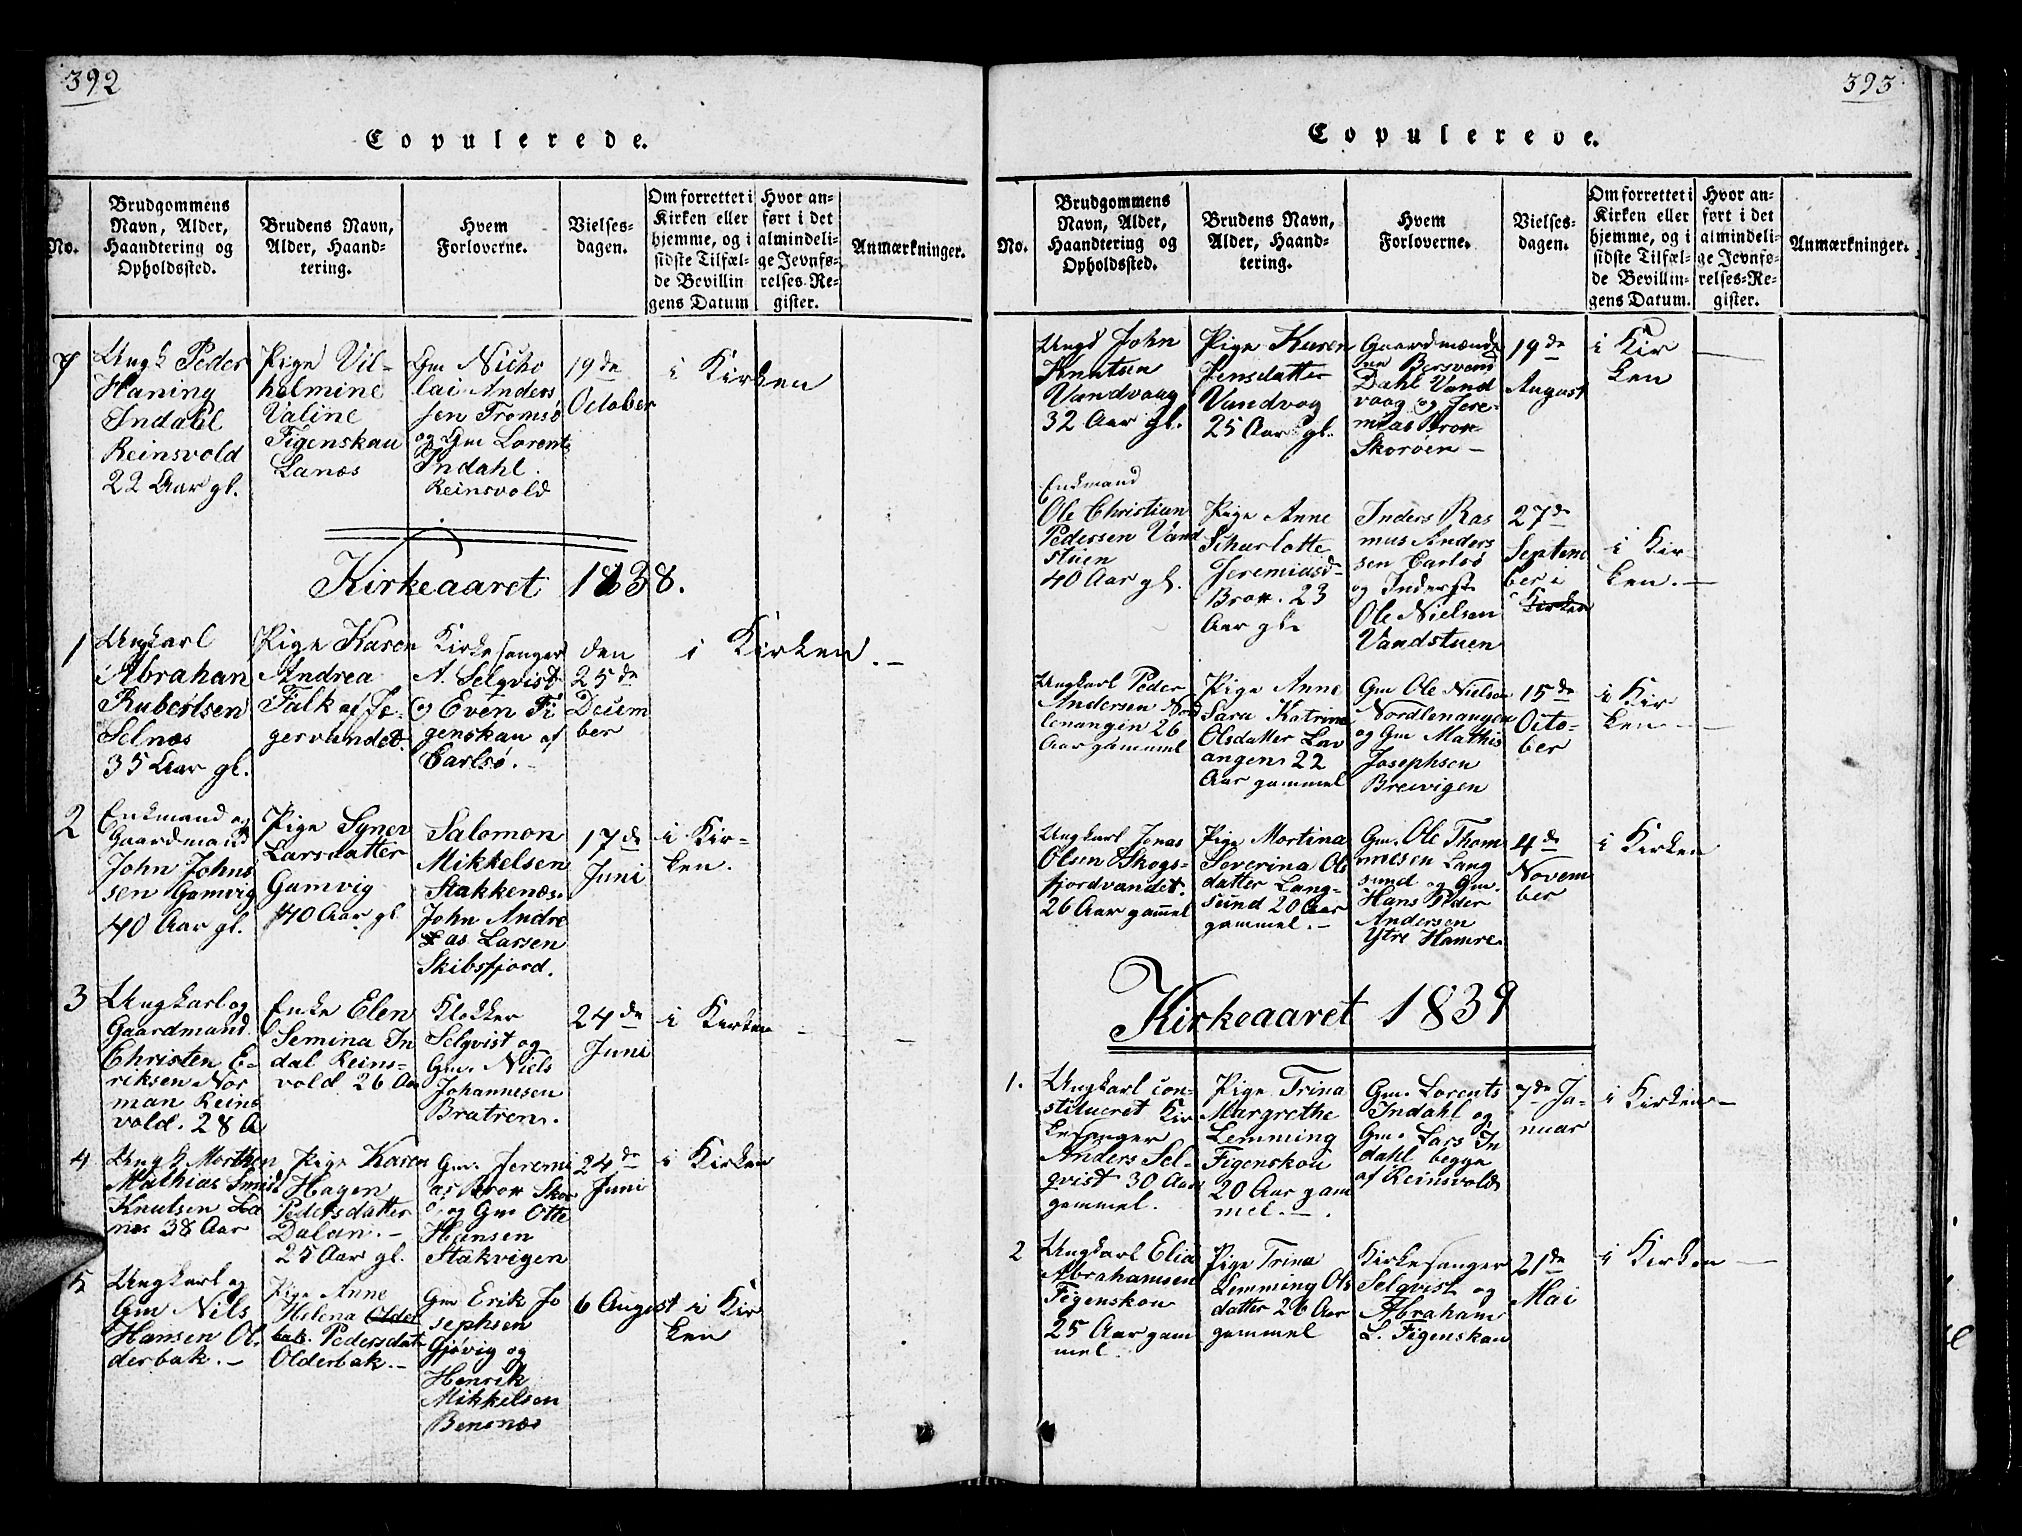 392
Copulerede.
No.
Brudgommens
Navn, Alder,
Haandtering og
Opholdssted.
Brudens Navn,
Alder, Haand-
tering.
Hvem
Forloverne.
Vielses-
dagen.
Om forrettet i
Kirken eller
hjemme, og i
sidste Tilfæl-
de Bevillin
gens Datum
Hvor an-
ført i det
almindeli-
ge Jevnfø-
relses-Re-
gister.
Anmærkninger.
7
Ungk Peder
Haning
Indahl
Reinsvold
22 Aar gl.
Pige Vil-
helmine
Valine
Figenskau
Lanæs
Gm Nicho
lai Anders
sen Tromsø
og Gm Lorents
Indahl.
Reinsvold
19de
October
i Kirken
Kirkeaaret 1838.
1
Ungkarl
Abrahan
Rubertsen
Selnæs
35 Aar gl.
Pige Karen
Andrea
Falk af Jæ-
gervandet.
Kirkesanger
A. Selqvist
og Even Fi
genskau af
Carlsø.
den
25de
Decem
ber
i Kirken.
2
Enkmand og
Gaardmand
John Johns
sen Gamvig
40 Aar gl.
Pige Syner
Larsdatter
Gamvig
40 Aar gl.
Salomon
Mikkelsen
Stakkenæs.
John Andre
as Larsen
Skibsfjord.
17de
Juni
i Kir-
ken.
3
Ungkarl og
Gaardmand
Christen E-
riksen Nor
man Reins
vold. 28 A
Enke Elen
Semina In
dal Reins-
vold 26 Aar
Klokker
Selqvist og
Gm. Niels
Johannesen
Bratren.
24de
Juni
i Kirken
4
Ungk Morthen
Mathias Smidt
Knutsen La
næs 38 Aar
Pige Karen
Hagen
Pedersdatter
Dalan.
25 Aar gl.
Gm. Jeremi
as Brox Skor
ø, og Gm Otte
Hansen
Stakvigen
24de
Juni
i Kirken
5
Ungkarl og
Gm Nils
Hansen Ol-
derbak.
Pige Anne
Helena Older
bak. Pedersdat
Olderbak.
Gm Erik Jo
sephsen
Gjøvig og
Henrik
Mikkelsen
Bensnæs
6 August
i Kir
ken
393
Copulerede.
No.
Brudgommens
Navn, Alder,
Haandtering og
Opholdssted.
Brudens Navn,
Alder, Haand-
tering.
Hvem
Forloverne.
Vielses-
dagen.
Om forrettet i
Kirken eller
hjemme, og i
sidste Tilfæl-
de Bevillin-
gens Datum.
Hvor an-
ført i det
almindeli-
ge Jevnfø-
relses-Re-
gister.
Anmærkninger.
Ungk John
Knutsen
Vandvaag
32 Aar gl.
Pige Karen
Jensdatter
Vandvog
25 Aar gl.
Gaardmænde
ne Bersvend
Dahl Vand
vaag og Jere-
mias Brox
Skorøen
19de
August
i Kir
ken
Enkmand
Ole Christian
Pedersen Vand
stuen
40 Aar gl.
Pige Anne
Scharlotte
Jeremiasd-
Brox. 23
Aar gl.
Inders Ras
mus Anders
sen Carlsø
og Inderst
Ole Nielsen
Vandstuen
27de
Septem
ber i
Kirken
i Kir-
ken.
Ungkarl Peder
Andersen Nord
lenangen 26
Aar gammel
Pige Anne
Sara Katrina
Olsdatter Lav
angen 22
Aar gammel
Gm Ole Nielsen
Nordlenangen
og Gm Mathis
Josephsen
Breivigen
15de
Octo-
ber
i Kir
ken
Ungkarl Jonas
Olsen Skogs-
fjordvandet.
26 Aar gammel
Pige Mortina
Severina Ols
datter Lang-
sund 20 Aar
gammel.
Gm. Ole Thom
mesen Lang
sund og Gm.
Hans Peder
Andersen
Ytre Hamre.
4de
Novem
ber
i Kirken
Kirkeaaret 1839
1.
Ungkarl con-
stitueret Kir
kesanger
Anders Sel-
qvist 30 Aar
gammel.
Pige Trina
Margrethe
Lemming
Figenskou
20 Aar gam
mel.
Gm. Lorents
Indahl og
Gm. Lars In
dahl begge
af Reinsvold
7de Ja-
nuar
i Kirken
2
Ungkarl Elia
Abrahamsen
Figenskou
25 Aar gam
mel.
Pige Trina
Lemming Ols
datter 26 Aar
gammel
Kirkesanger
Selqvist og
Abraham
L. Figenskau
21de
Mai
i Kirken